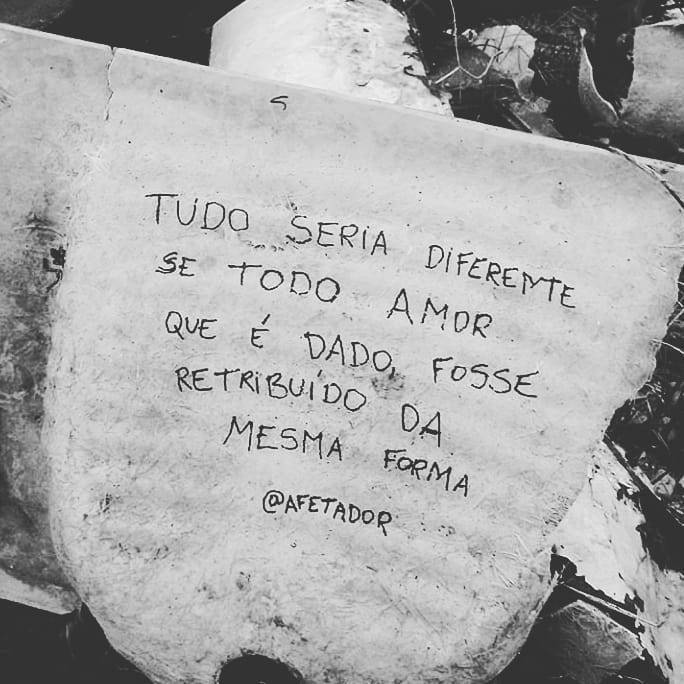 TUDO SERIA DIFERENTE
SE TODO AMOR
QUE É DADO, FOSSE
RETRIBUÍDO DA
MESMA FORMA
@AFETADOR